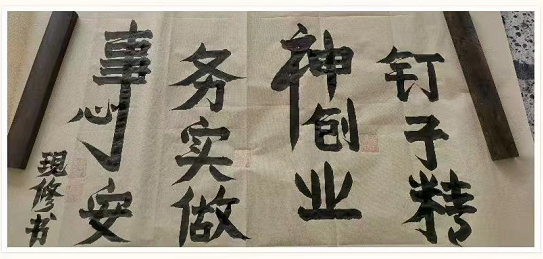 钉子精
神创业
务实做
事心安
现修书